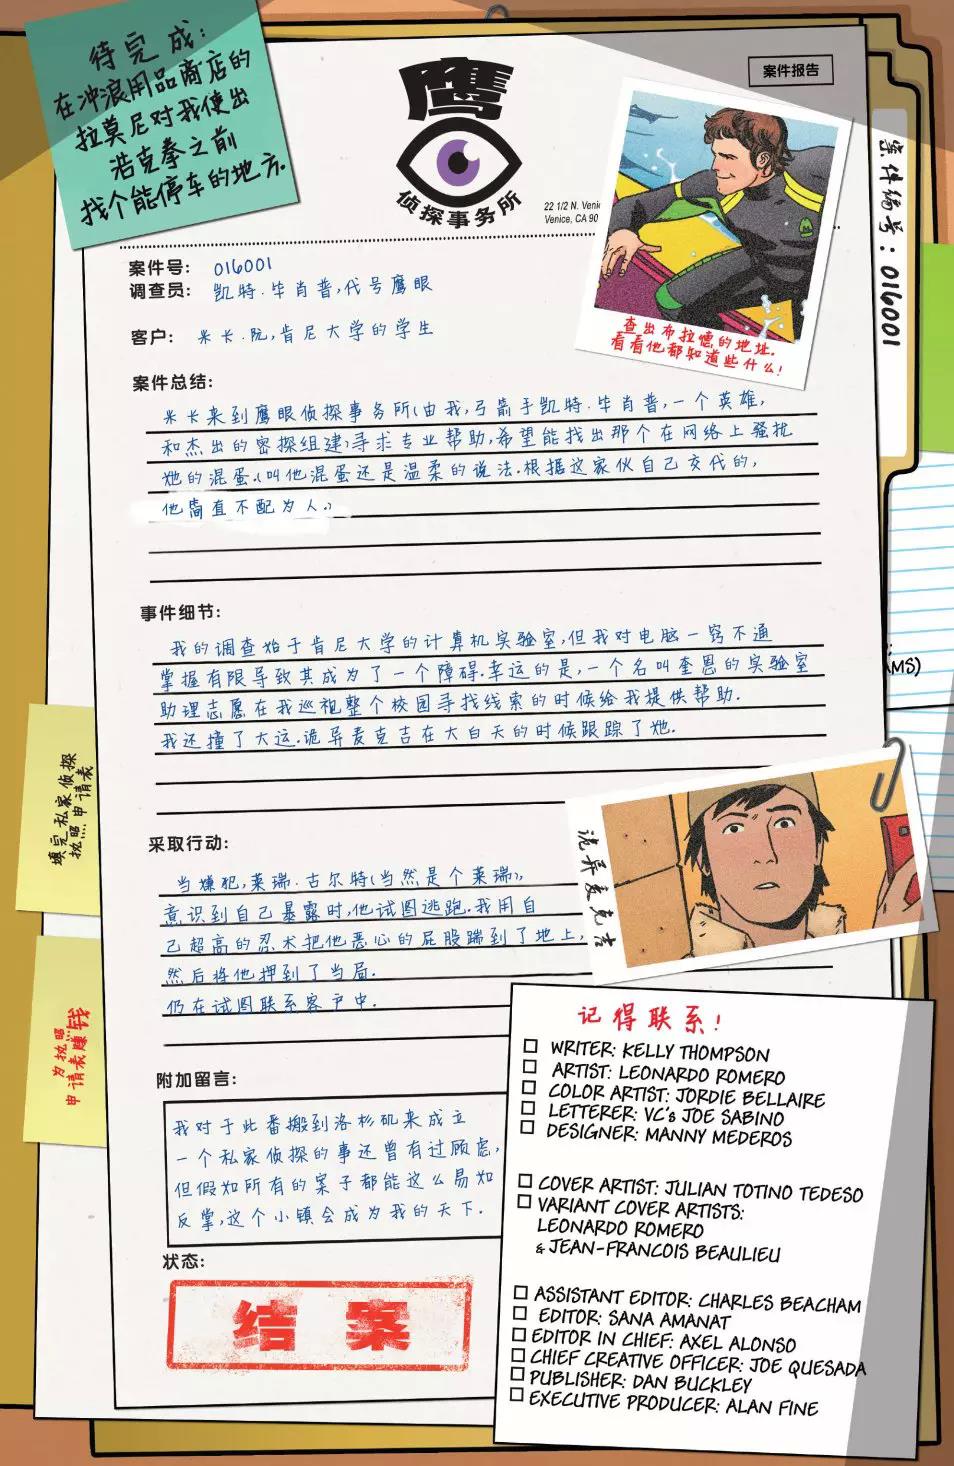 待完成:
在冲浪用品商店的
拉莫尼对我使出
浩克拳之前
找个能停车的地方.
鹰
侦探事务所
案件报告
22 1/2 N. Venic
Venice, CA 90
案件编号: 016001
案件号: 016001
调查员: 凯特.毕肖普,代号鹰眼
客户: 米卡.阮,肯尼大学的学生
查出布拉德的地址.
看看他都知道些什么!
案件总结:
米卡来到鹰眼侦探事务所(由我,弓箭手凯特.毕肖普,一个英雄,
和杰出的密探组建)寻求专业帮助,希望能找出那个在网络上骚扰
她的混蛋.(叫他混蛋还是温柔的说法.根据这家伙自己交代的,
他简直不配为人.)
事件细节:
我的调查始于肯尼大学的计算机实验室,但我对电脑一窍不通
掌握有限导致其成为了一个障碍.幸运的是,一个名叫奎恩的实验室
助理志愿在我巡视整个校园寻找线索的时候给我提供帮助.
我还撞了大运.诡异麦克吉在大白天的时候跟踪了她.
:
AMS)
填完私家侦探
执照申请表
诡异麦克吉
采取行动:
当嫌犯,莱瑞.古尔特(当然是个莱瑞),
意识到自己暴露时,他试图逃跑.我用自
己超高的忍术把他恶心的屁股踹到了地上,
然后将他押到了当局.
仍在试图联系客户中.
为执照
申请表赚钱
附加留言:
我对于此番搬到洛杉矶来成立
一个私家侦探的事还曾有过顾虑,
但假如所有的案子都能这么易如
反掌,这个小镇会成为我的天下.
状态:
结案
记得联系!
WRITER: KELLY THOMPSON
ARTIST: LEONARDO ROMERO
COLOR ARTIST: JORDIE BELLAIRE
LETTERER: VC's JOE SABINO
DESIGNER: MANNY MEDEROS
COVER ARTIST: JULIAN TOTINO TEDESO
VARIANT COVER ARTISTS:
LEONARDO ROMERO
& JEAN-FRANCOIS BEAULIEU
ASSISTANT EDITOR: CHARLES BEACHAM
EDITOR: SANA AMANAT
EDITOR IN CHIEF: AXEL ALONSO
CHIEF CREATIVE OFFICER: JOE QUESADA
PUBLISHER: DAN BUCKLEY
EXECUTIVE PRODUCER: ALAN FINE